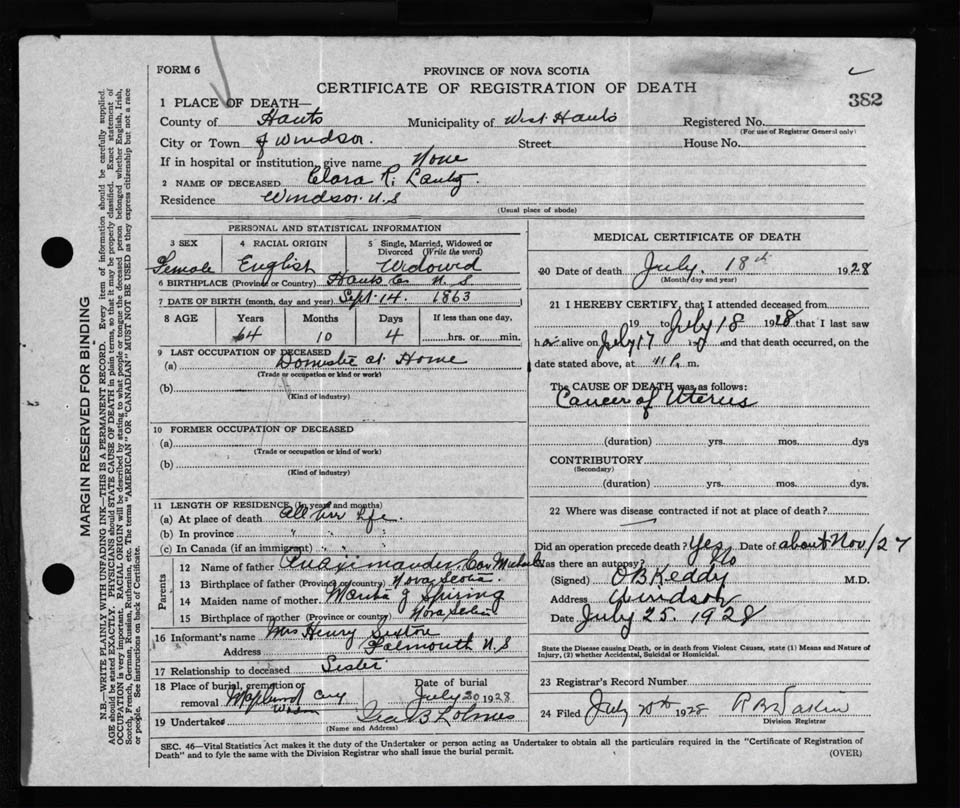 FORM 6
PROVINCE OF NOVA SCOTIA
CERTIFICATE OF REGISTRATION OF DEATH
382
1 PLACE OF DEATH—
County of Hants Municipality of West Hants Registered No.
(For use of Registrar General only)
City or Town of Windsor. Street House No.
If in hospital or institution, give name None
2 NAME OF DECEASED Clara R.
Residence Windsor N.S
(Usual place of abode)
PERSONAL AND STATISTICAL INFORMATION
3 SEX 4 RACIAL ORIGIN 5 Single, Married, Widowed or Divorced (Write the word)
Female English Widowed
6 BIRTHPLACE (Province or Country) Hants Co. N.S.
7 DATE OF BIRTH (month, day and year) Sept. 14. 1863
8 AGE Years Months Days If less than one day,
64 10 4 hrs. or min.
9 LAST OCCUPATION OF DECEASED
(a) Domestic at Home
(Trade or occupation or kind or work)
(b)
(Kind of industry)
10 FORMER OCCUPATION OF DECEASED
(a)
(Trade or occupation or kind of work)
(b)
(Kind of industry)
11 LENGTH OF RESIDENCE (In years and months)
(a) At place of death All her Life.
(b) In province " " "
(c) In Canada (if an immigrant) " " "
Parents
12 Name of father Anaximander
13 Birthplace of father (Province or country) Nova Scotia
14 Maiden name of mother J
15 Birthplace of mother (Province or country) Nova Scotia
16 Informant's name Mrs Henry Sexton
Address Falmouth N.S
17 Relationship to deceased Sister
18 Place of burial, cremation or removal Date of burial
Windsor July 20 1928
19 Undertaker Geo B
(Name and Address)
MEDICAL CERTIFICATE OF DEATH
20 Date of death July. 18th 1928
(Month day and year)
21 I HEREBY CERTIFY, that I attended deceased from
19 to July 18 1928 that I last saw
her alive on July 17 19 and that death occurred, on
date stated above, at 11 P. m.
The CAUSE OF DEATH was as follows:
Cancer of Uterus
(duration) yrs. mos. dys
CONTRIBUTORY
(Secondary)
(duration) yrs. mos. dys.
22 Where was disease contracted if not at place of death?
Did an operation precede death? Yes Date of about Nov/27
Was there an autopsy? No
(Signed) O B Keddy M.D.
Address Windsor
Date July 25. 1928
State the Disease causing Death, or in death from Violent Causes, state (1) Means and Nature of Injury, (2) whether Accidental, Suicidal or Homicidal.
23 Registrar's Record Number
24 Filed July 1928
Division Registrar
SEC. 46—Vital Statistics Act makes it the duty of the Undertaker or person acting as Undertaker to obtain all the particulars required in the "Certificate of Registration of
Death" and to fyle the same with the Division Registrar who shall issue the burial permit. (OVER)
MARGIN RESERVED FOR BINDING
N.B.—WRITE PLAINLY WITH UNFADING INK—THIS IS A PERMANENT RECORD. Every item of information should be carefully supplied.
AGE should be stated EXACTLY. PHYSICIANS should STATE CAUSE OF DEATH in plain terms, so that it may be properly classified. Exact statement of
OCCUPATION is very important. RACIAL ORIGIN will be described by stating to what people or tongue the deceased person belonged whether English, Irish,
Scotch, French, German, Russian, Ruthenian, etc. The terms "AMERICAN" OR "CANADIAN" MUST NOT BE USED as they express citizenship but not a race
or people. See instructions on back of Certificate.